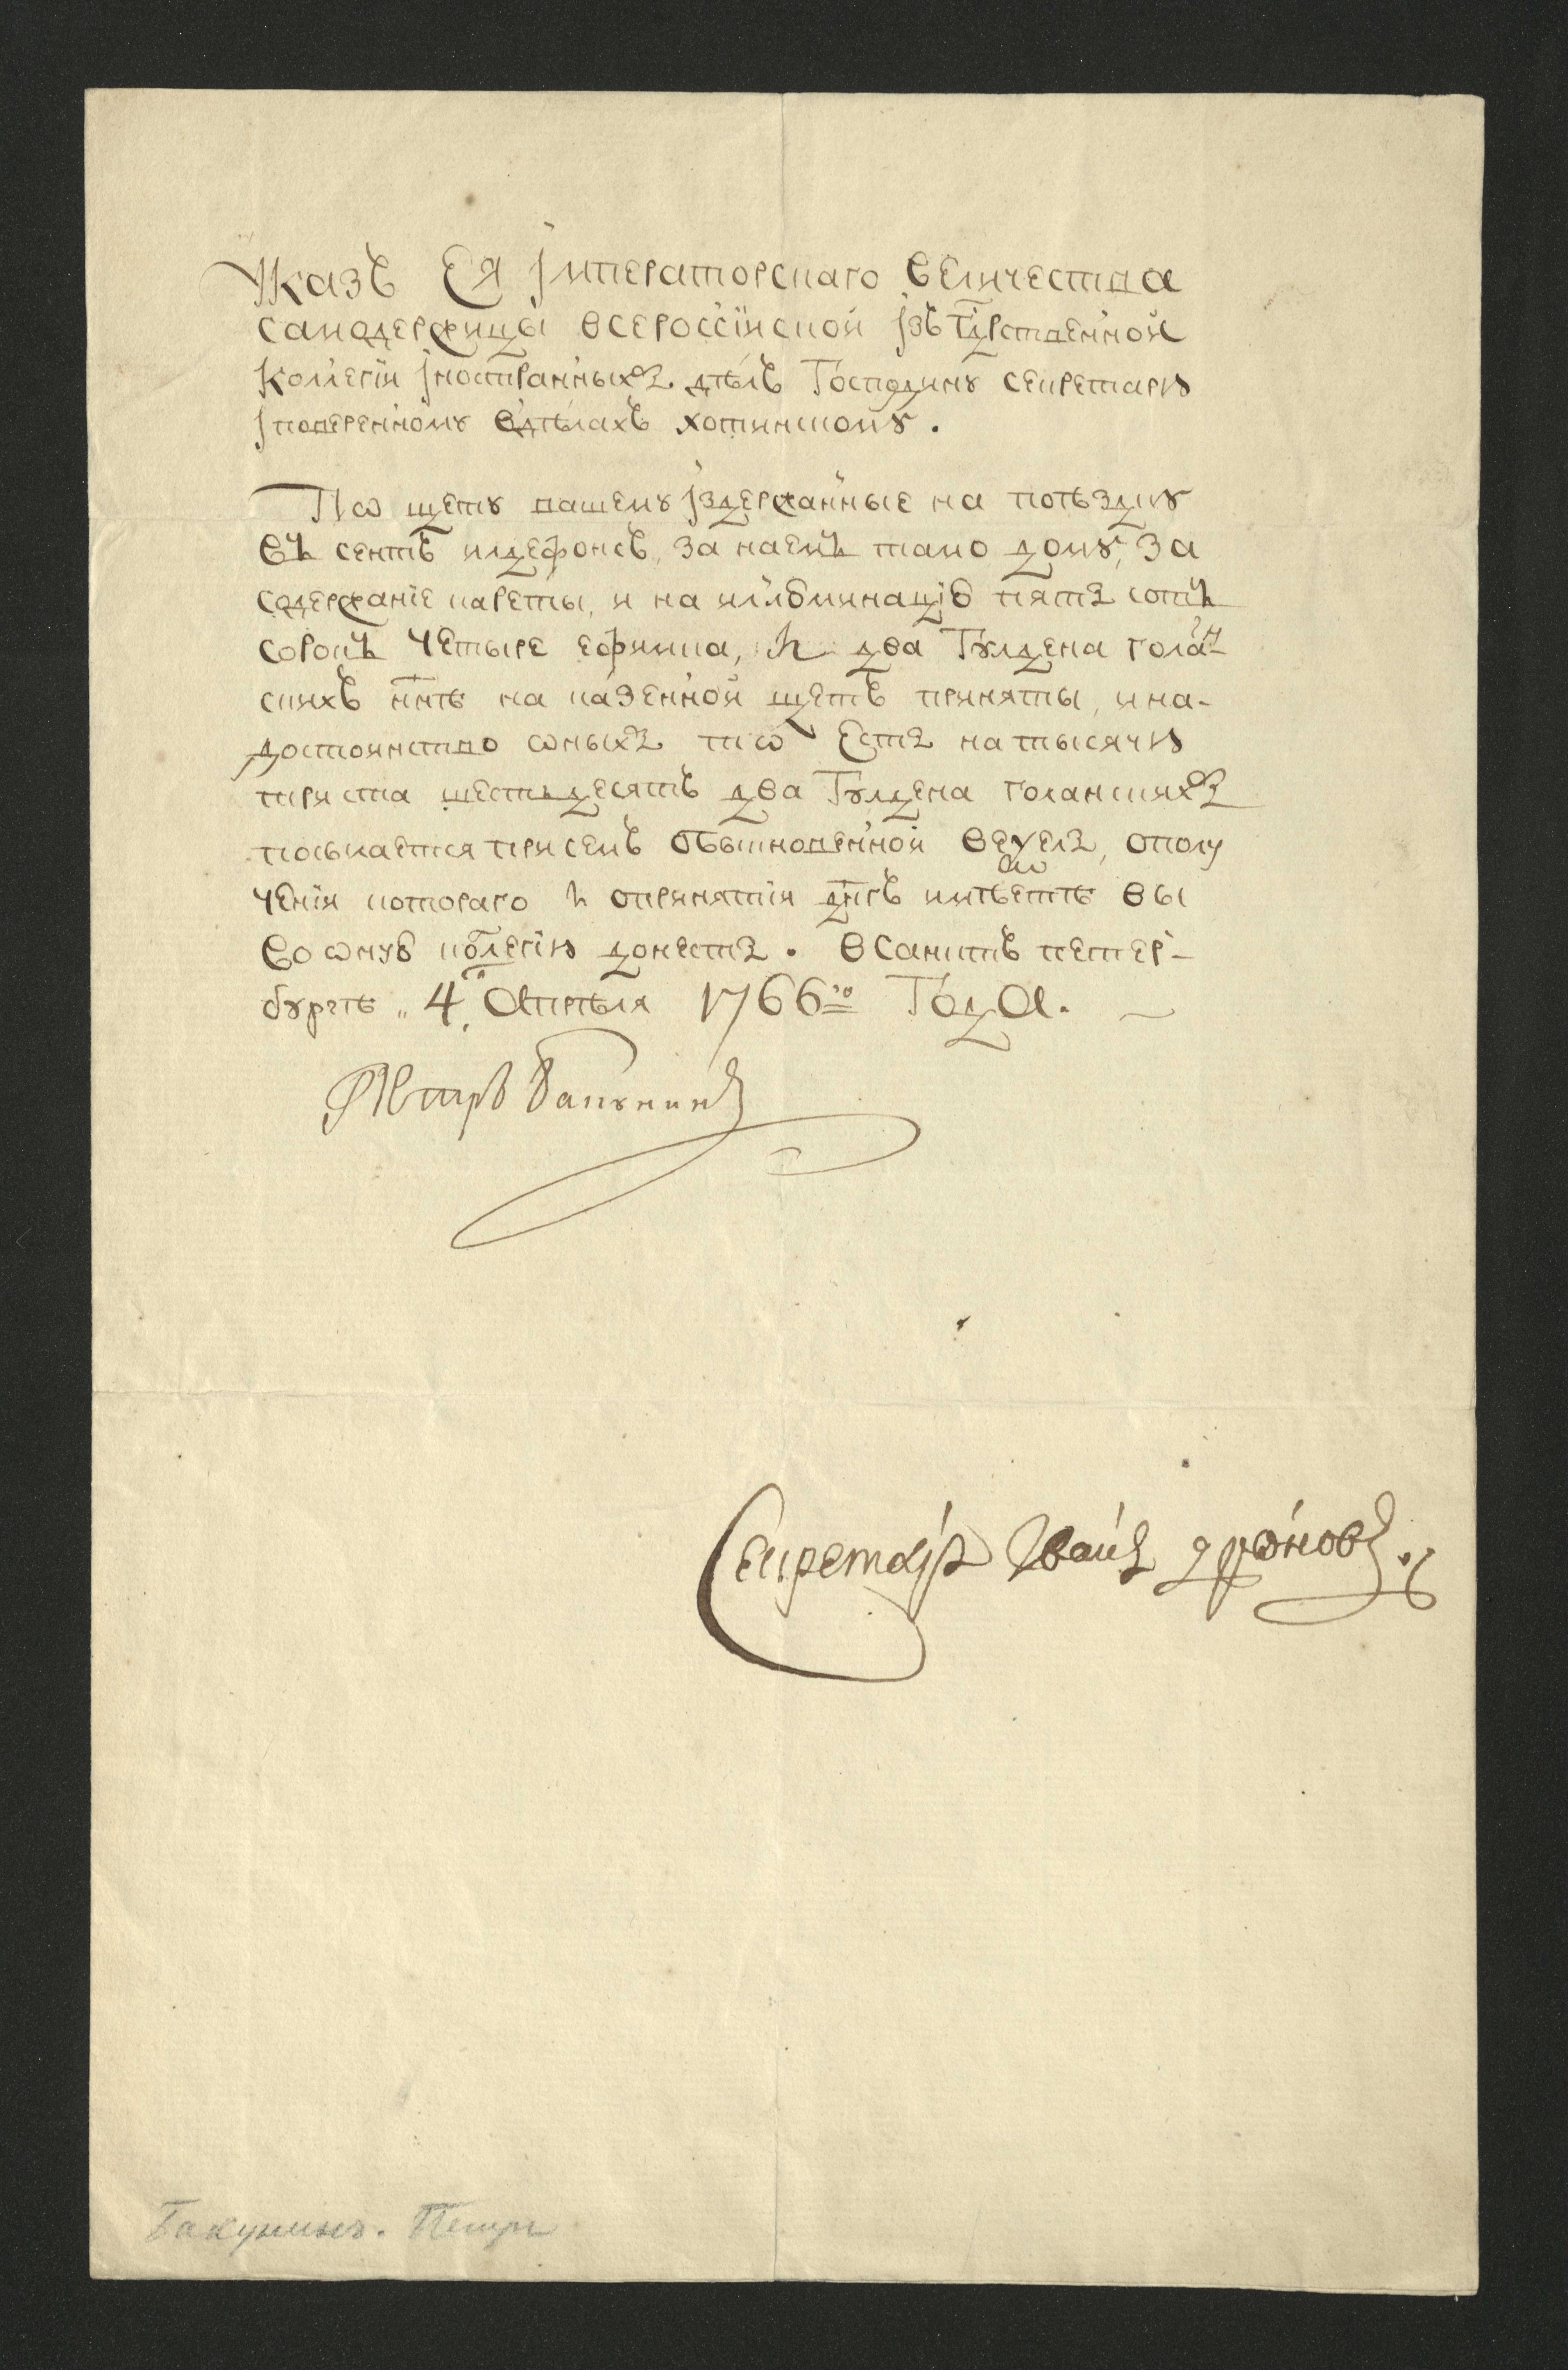 Указъ Ея Імператорскаго Величества
самодержицы всероссїиской ізъ гдрственной
Колегіи Іностранныхъ дѣлъ Господину секретарю
Іповеренному вдѣлахъ хотинскому.
По щету вашему іздержанные на поѣздку
въ сентъ илдефонсъ, за наемъ тамо дому, за
содержанїе кареты, и на иллюминацїю пять сотъ
сорокъ четыре ефимка, и два Гулдена гола́н
скихъ ннѣ на казенной щетъ приняты, и на-
достоинство оныхъ то есть на тысячю
триста шестьдесятъ два Гулдена голанскихъ
посылается присемъ обыкновенной вексель, ополу
ченїя котораго и опринятїи днгъ имѣете вы
во оную колегію донесть. Всанктъ петер-
бургѣ „ 4го Апрѣля 1766го Года.
Петръ Бакунинъ
Секретарь Иванъ
Бакунинъ. Петръ